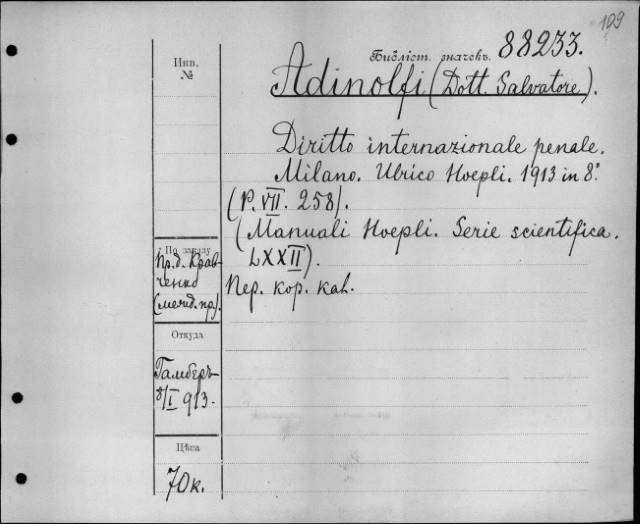 109
Библіот. значекъ. 88233.
Инв.
№
Adinolfi (Dott. Salvatore).
Diritto internazionale penale.
Milano. Ulrico Hoepli. 1913 in 8°.
(P. VII. 258).
(Manuali Hoepli. Serie scientifica.
LXXII).
Пер. кор. кал.
По заказу
Пр.д. Крав-
ченко
(межд. пр.).
Откуда
Гамберъ
8/I 913.
Цѣна
70 к.